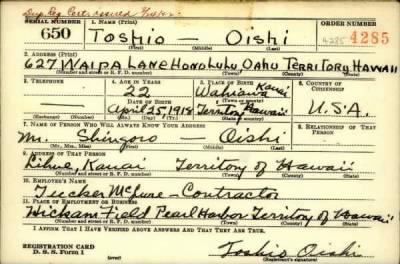 Dup. Reg. Cert. issued
SERIAL NUMBER 1. NAME (Print) ORDER NUMBER
650 Toshio — Oishi 4285 4285
(First) (Middle) (Last)
2. ADDRESS (Print)
627 WAIPA LANE HONOLULU OAHU TERRITORY HAWAII
(Number and street or R. F. D. number) (Town) (County) (State)
3. TELEPHONE 4. AGE IN YEARS 5. PLACE OF BIRTH 6. COUNTRY OF CITIZENSHIP
22 Wahiawa Kauai
DATE OF BIRTH (Town or county)
April 25, 1918 Territory Hawaii U.S.A.
(Exchange) (Number) (Mo.) (Day) (Yr.) (State or country)
7. NAME OF PERSON WHO WILL ALWAYS KNOW YOUR ADDRESS 8. RELATIONSHIP OF THAT PERSON
Mr. Shingoro — Oishi
(Mr., Mrs., Miss) (First) (Middle) (Last)
9. ADDRESS OF THAT PERSON
Lihue, Kauai Territory of Hawaii
(Number and street or R. F. D. number) (Town) (County) (State)
10. EMPLOYER'S NAME
Tucker McLure — Contractor
11. PLACE OF EMPLOYMENT OR BUSINESS
Hickam Field Pearl Harbor Territory of Hawaii
(Number and street or R. F. D. number) (Town) (County) (State)
I AFFIRM THAT I HAVE VERIFIED ABOVE ANSWERS AND THAT THEY ARE TRUE.
REGISTRATION CARD
D. S. S. Form 1 Toshio Oishi
(Registrant's signature)